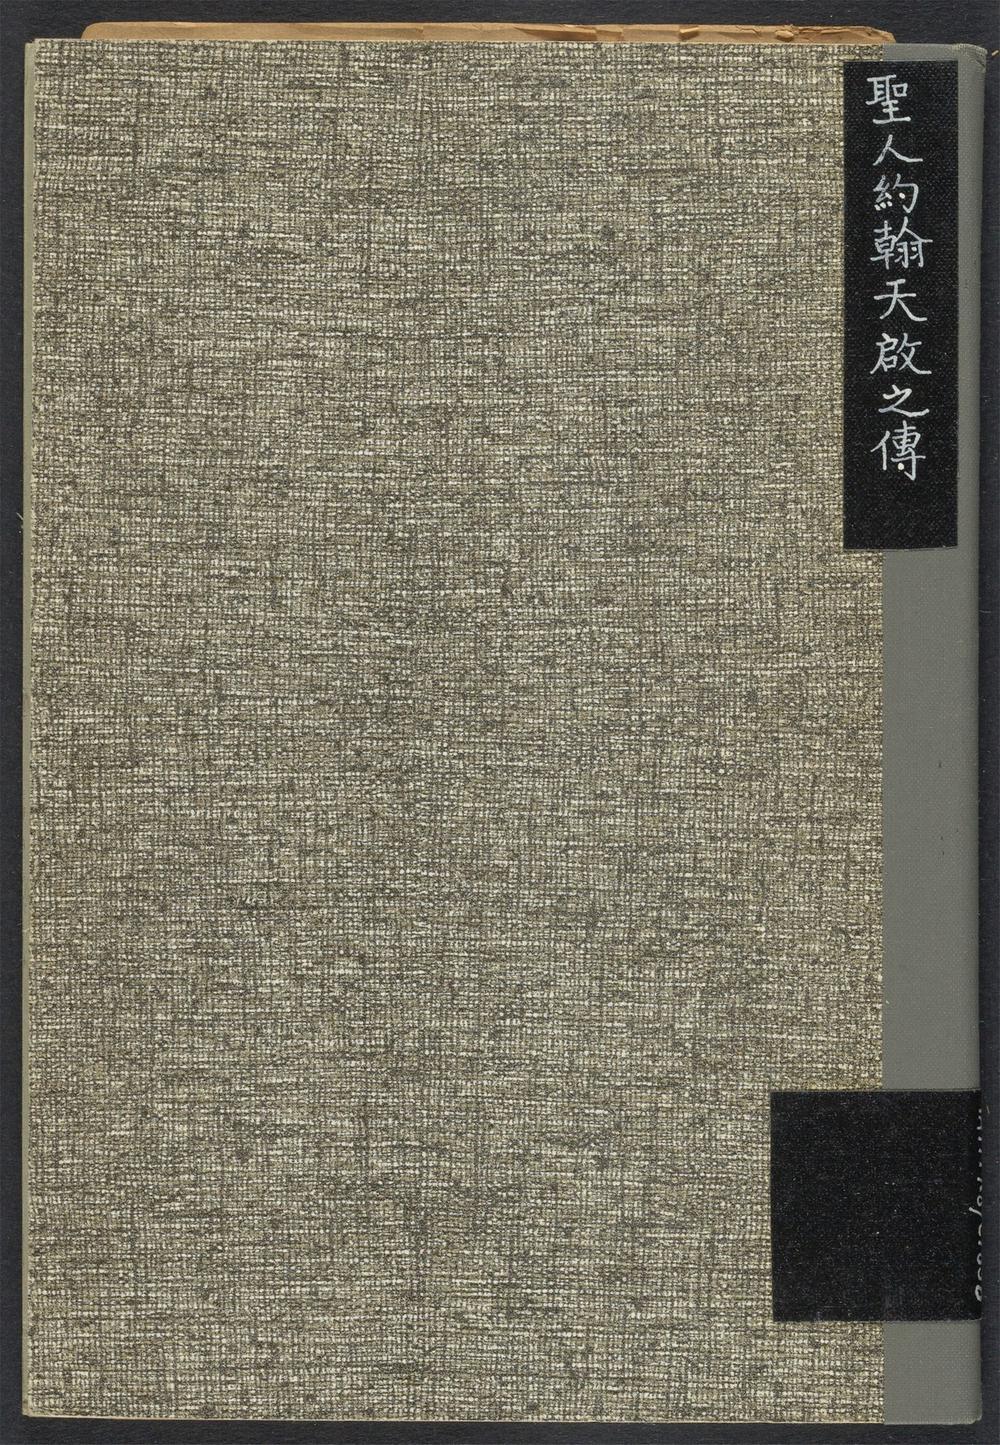 聖人約翰天啟之傳